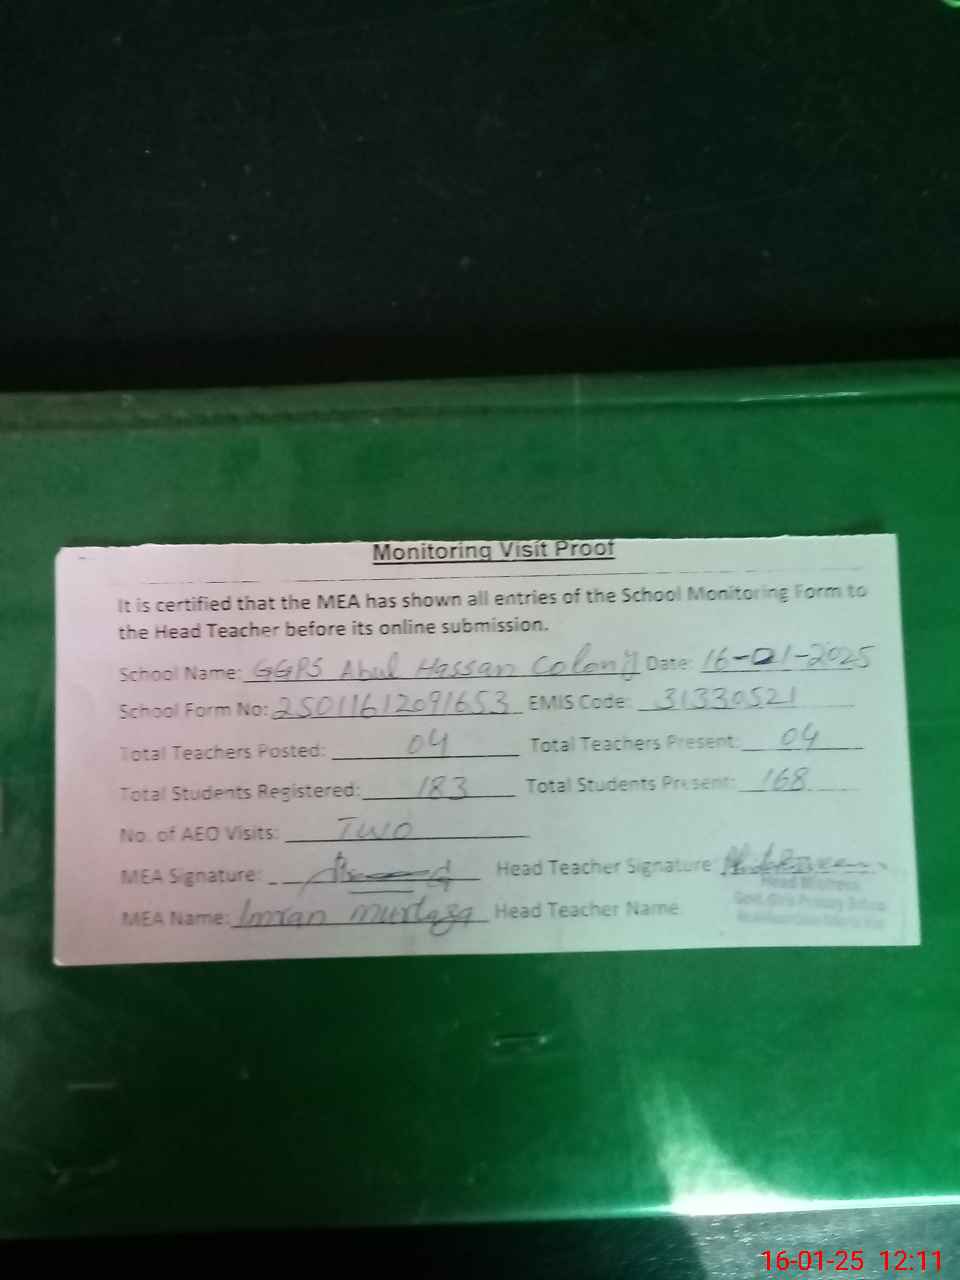 Monitoring Visit Proof
It is certified that the MEA has shown all entries of the School Monitoring Form to
the Head Teacher before its online submission.
School Name: GGPS Abul Hassan Colony Date: 16-01-2025
School Form No: 25011612091653 EMIS Code: 31330521
Total Teachers Posted: 04 Total Teachers Present: 04
Total Students Registered: 183 Total Students Present: 168
No. of AEO Visits: Two
MEA Signature: Head Teacher Signature
Head Mistress
MEA Name: Imran Murtaza Head Teacher Name
Govt. Girls Primary School
16-01-25 12:11